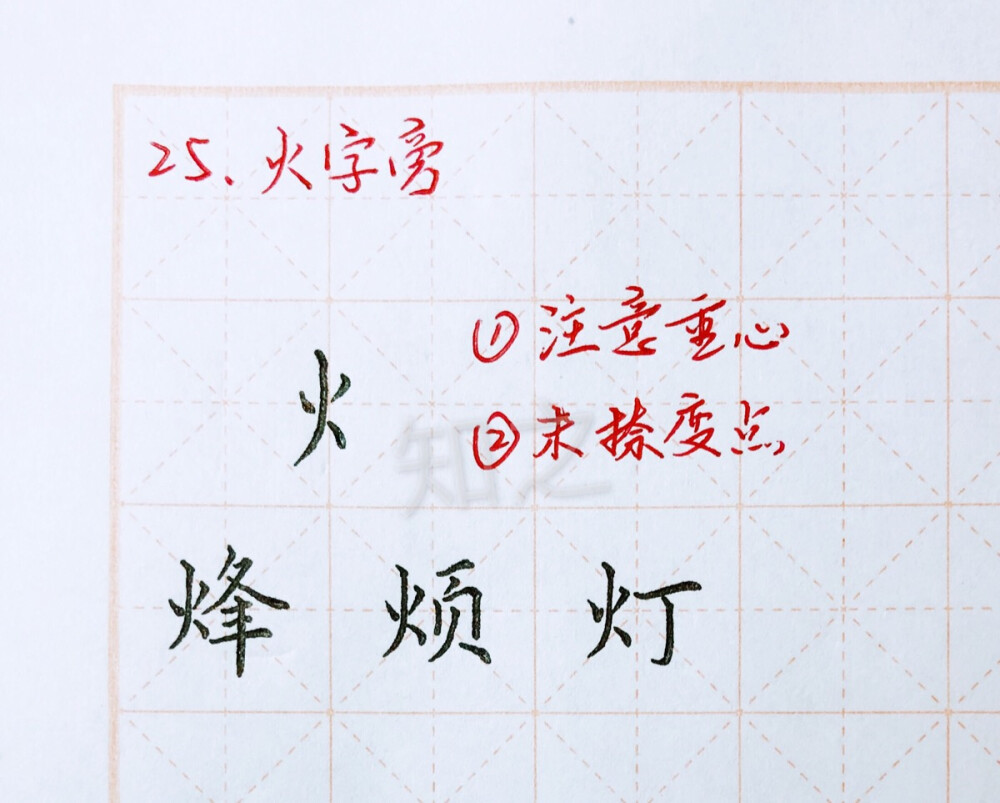 25.火字旁
①注意重心
火
②末捺变点
知之
烽 烦 灯